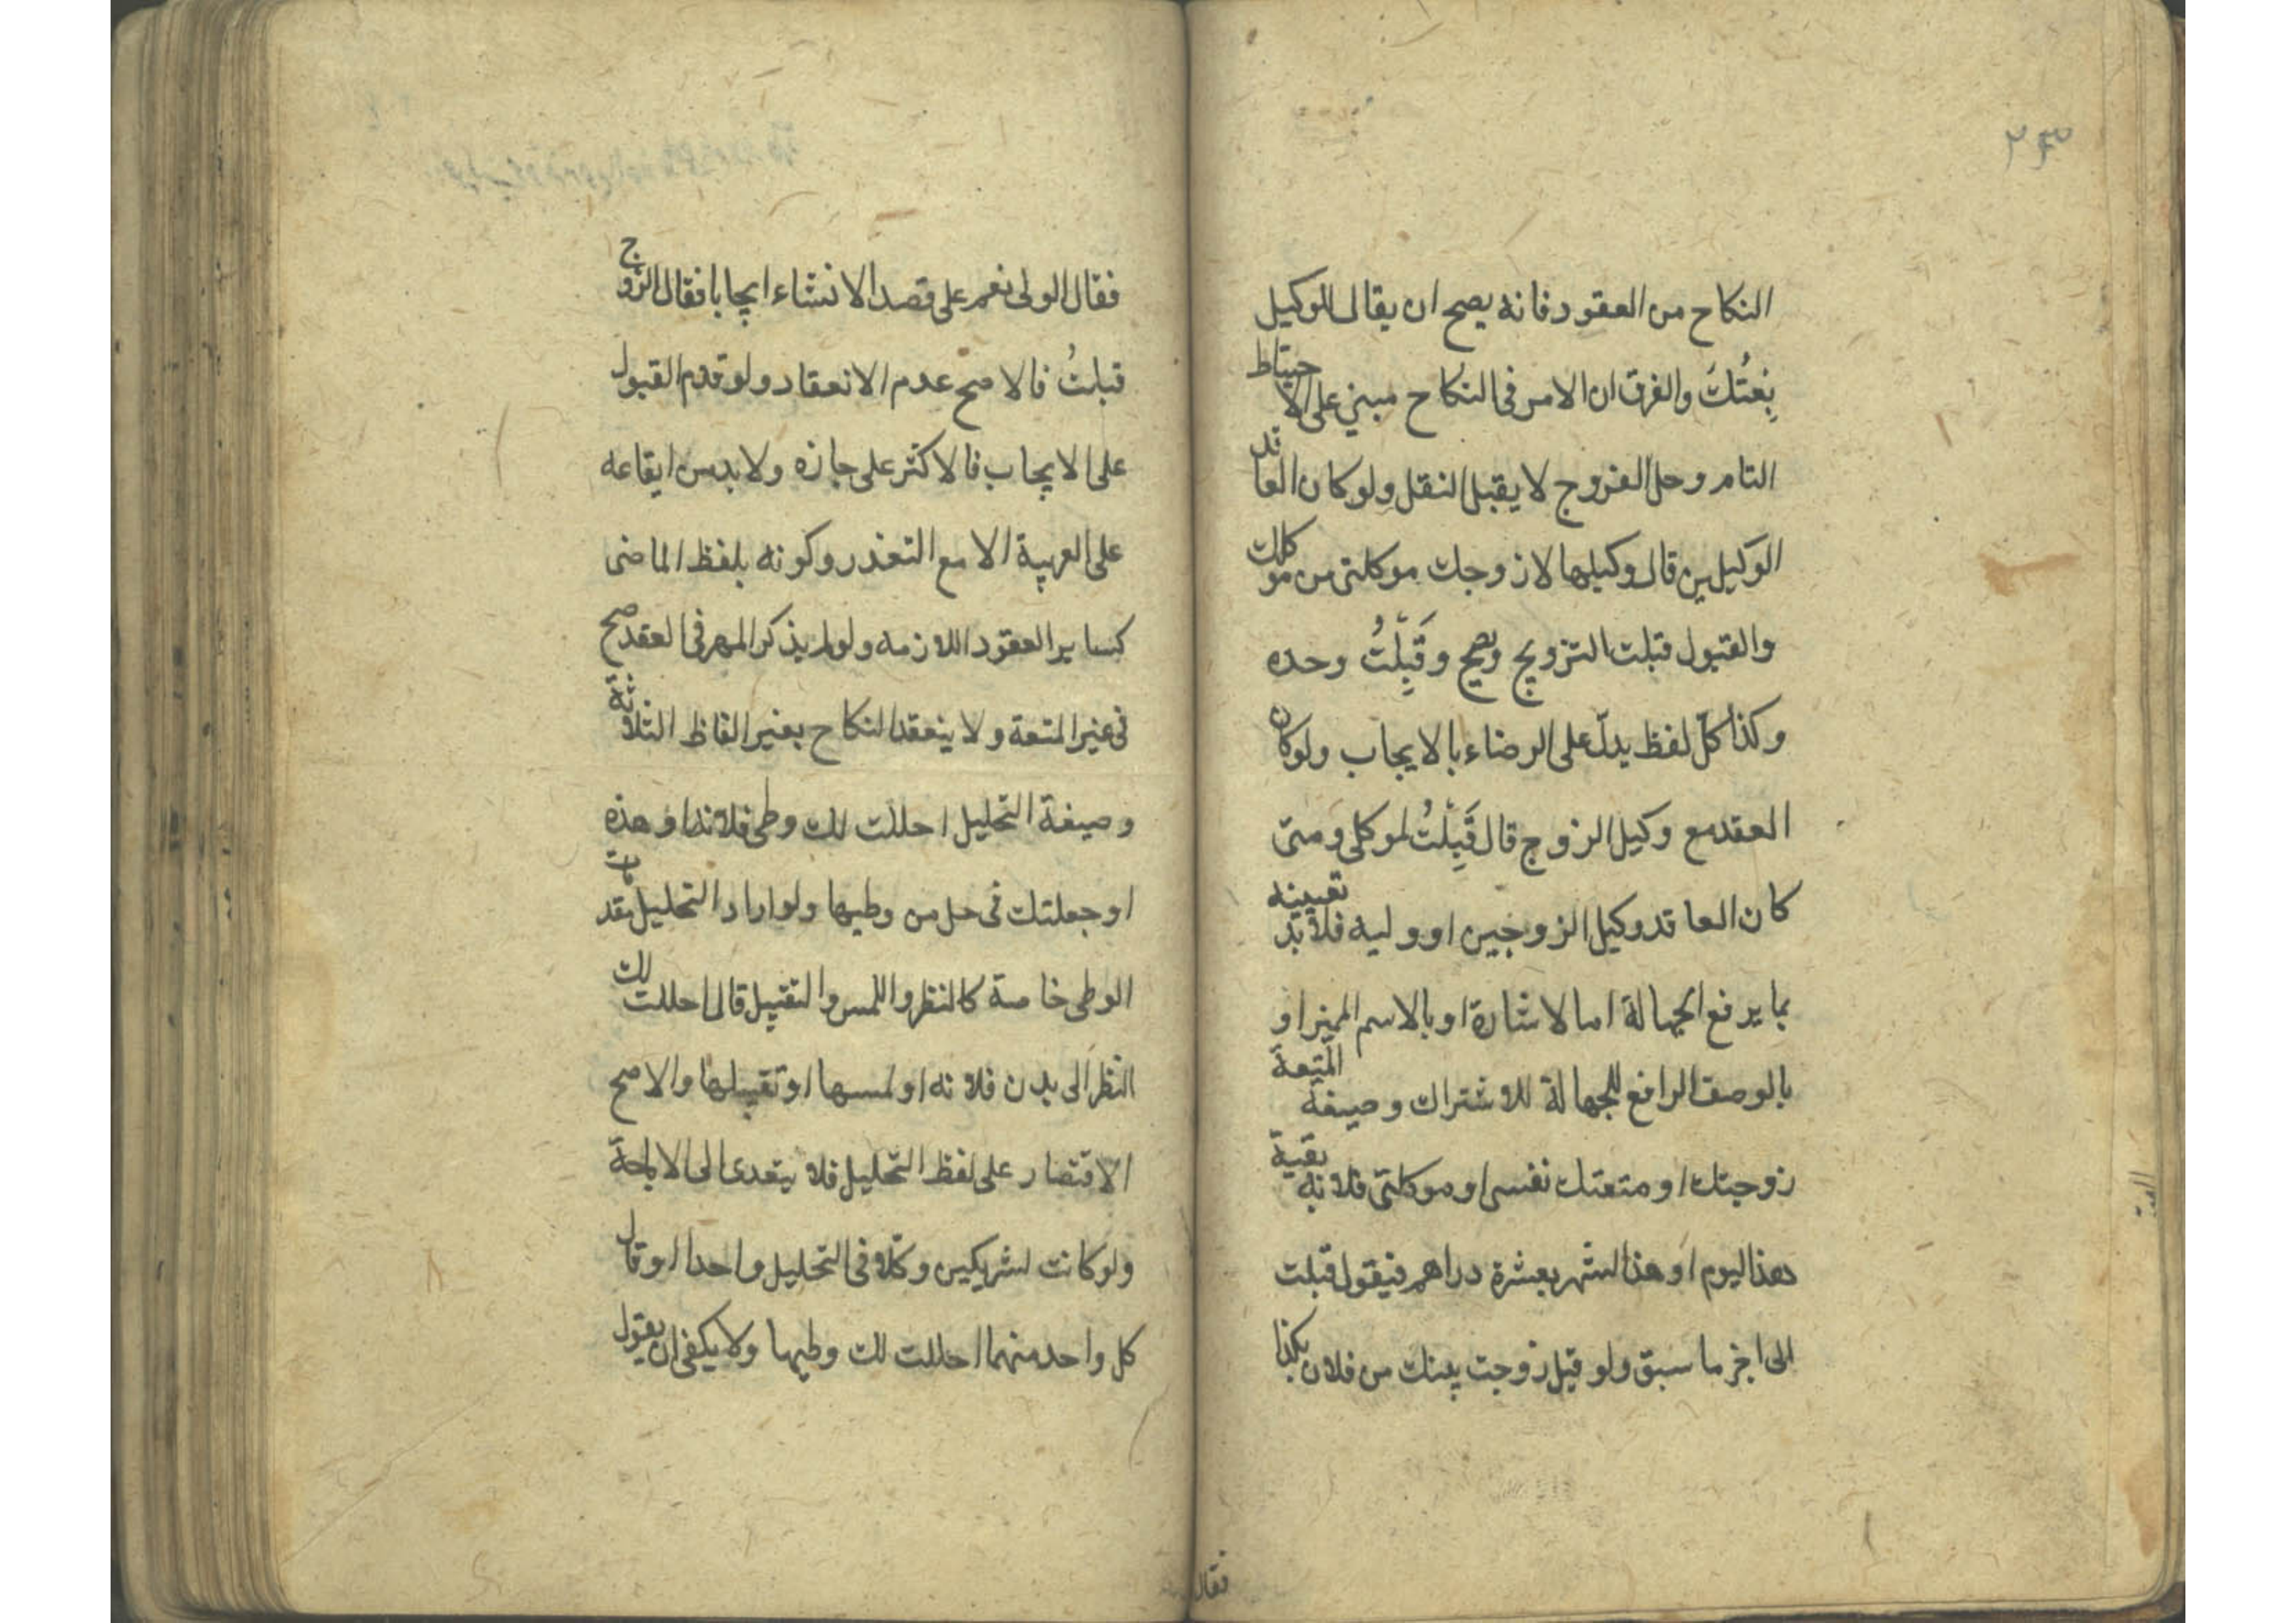 ۲۳
النكاح من العقود فانه يصح ان يقال للوكيل
بِعْتُكَ والفرق ان الامر فى النكاح مبني على الاحتياط
التام وحل الفروج لا يقبل النقل ولو كان العاقد
الوكيلين قال وكيلها لازوجك موكلتى من موكلك
والقبول قبلت التزويج ويصح وقَبِلْتُ وحده
وكذا كلّ لفظ يدلّ على الرضاء بالايجاب ولو كان
العقد مع وكيل الزوج قال قَبِلْتُ لموكلى ومتى
كان العاقد وكيل الزوجين او وليه فلابدّ تعيينه
بما يرفع الجهالة اما لاشارة او بالاسم المميز او
بالوصف الرافع للجهالة للاشتراك وصيغة المتعة
زوجتك او متعتك نفسى او موكلتى فلانه بقية
هذا اليوم او هذا الشهر بعشرة دراهم فيقول قبلت
الى اخر ما سبق ولو قيل زوجت بنتك من فلان بكذا
فقال
فقال الولى نعم على قصد الانشاء ايجابا فقال الزوج
قبلتُ فالاصح عدم الانعقاد ولو قدم القبول
على الايجاب فالاكثر على جازه ولابد من ايقاعه
على العربية الا مع التعذر وكونه بلفظ الماضى
كساير العقود اللازمه ولو لم يذكر المهر فى العقد صح
فى غير المتعة ولا ينعقد النكاح بغير الفاظ الثلاثة
وصيغة التحليل احللت لك وطى فلانه او هذه
او جعلتك فى حل من وطيها ولو اراد التحليل
الوطى خاصة كالنظر واللمس والتقبيل قال احللت لك
النظر الى بدن فلانه او لمسها او تقبيلها والاصح
الاقتصار على لفظ التحليل فلا يتعدى الى الاباحة
ولو كانت لشريكين وكّلا فى التحليل واحدا او قال
كل واحد منهما احللت لك وطيها ولا يكفى ان يقول